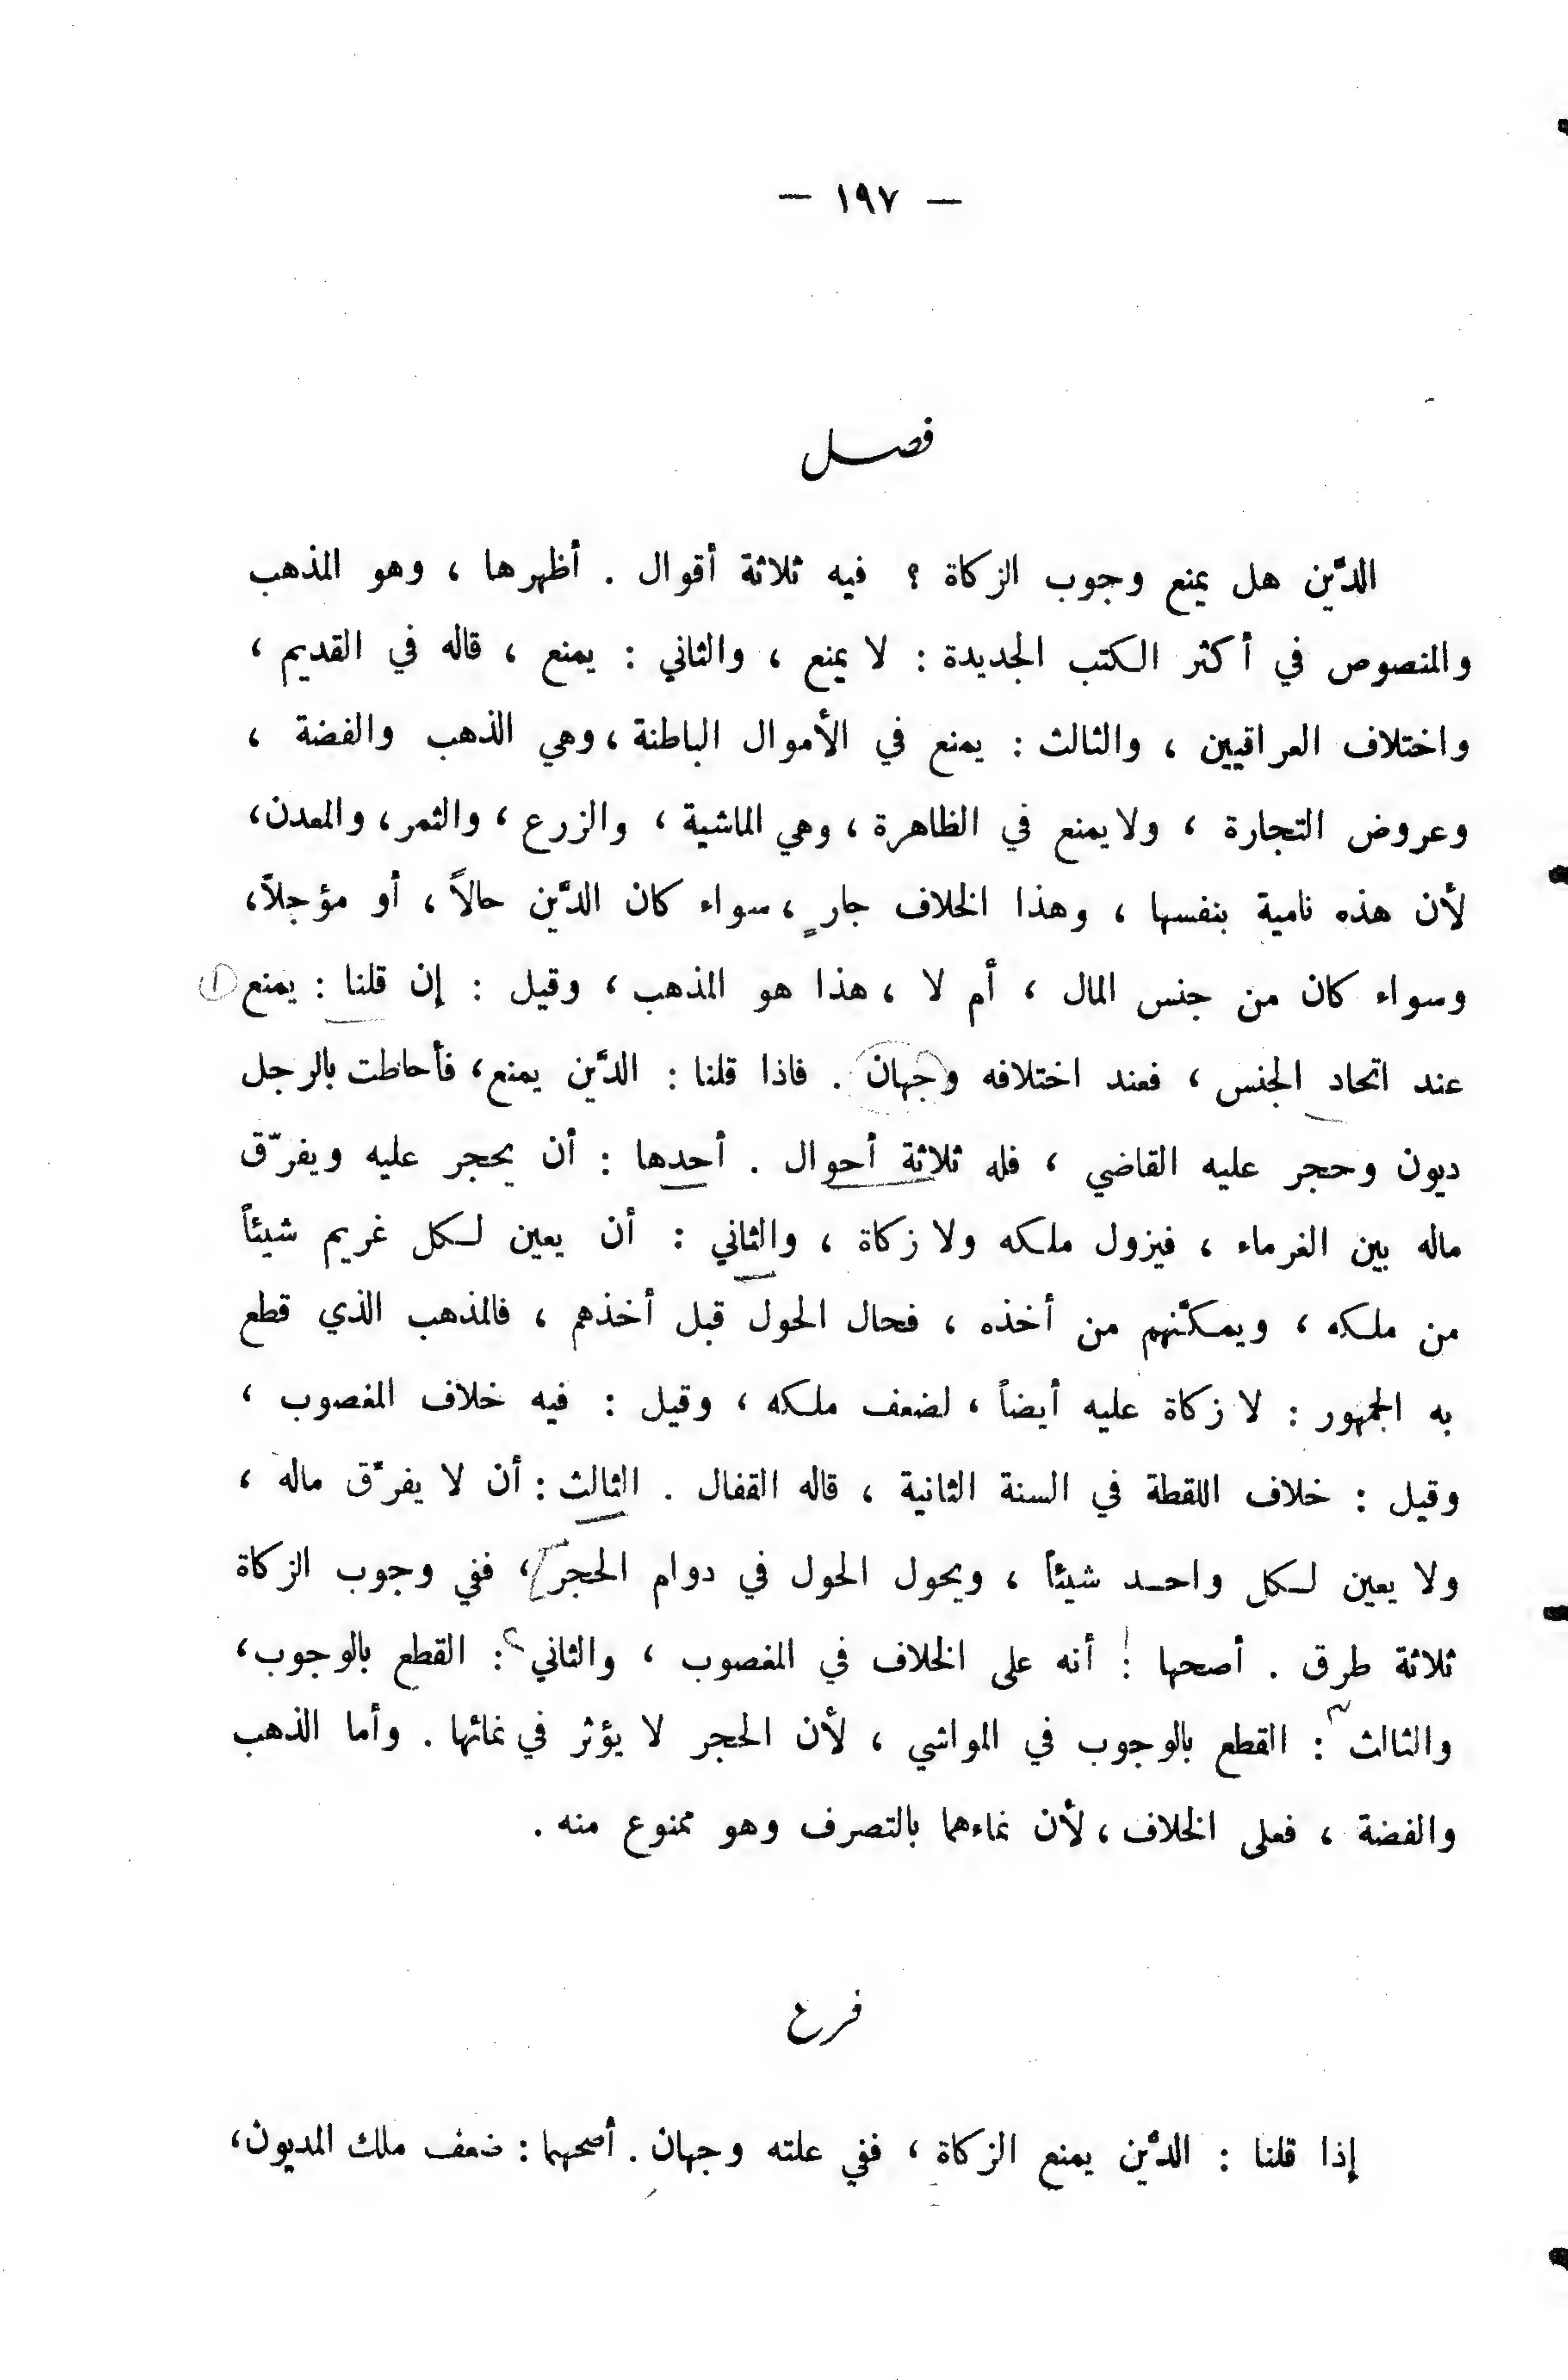 — ١٩٧ —
فصل
الدَّين هل يمنع وجوب الزكاة ؟ فيه ثلاثة أقوال . أظهرها ، وهو المذهب
والمنصوص في أكثر الكتب الجديدة : لا يمنع ، والثاني : يمنع ، قاله في القديم ،
واختلاف العراقيين ، والثالث : يمنع في الأموال الباطنة ، وهي الذهب والفضة ،
وعروض التجارة ، ولا يمنع في الظاهرة ، وهي الماشية ، والزرع ، والثمر ، والمعدن ،
لأن هذه نامية بنفسها ، وهذا الخلاف جارٍ ، سواء كان الدَّين حالاً ، أو مؤجلاً ،
وسواء كان من جنس المال ، أم لا ، هذا هو المذهب ، وقيل : إن قلنا : يمنع ①
عند اتحاد الجنس ، فعند اختلافه وجهان . فاذا قلنا : الدَّين يمنع ، فأحاطت بالرجل
ديون وحجر عليه القاضي ، فله ثلاثة أحوال . أحدها : أن يحجر عليه ويفرّق
ماله بين الغرماء ، فيزول ملكه ولا زكاة ، والثاني : أن يعين لكل غريم شيئاً
من ملكه ، ويمكَّنهم من أخذه ، فحال الحول قبل أخذهم ، فالمذهب الذي قطع
به الجمهور : لا زكاة عليه أيضاً ، لضعف ملكه ، وقيل : فيه خلاف المغصوب ،
وقيل : خلاف اللقطة في السنة الثانية ، قاله القفال . الثالث : أن لا يفرَّق ماله ،
ولا يعين لكل واحد شيئاً ، ويحول الحول في دوام الحجر ، ففي وجوب الزكاة
ثلاثة طرق . أصحها : أنه على الخلاف في المغصوب ، والثاني : القطع بالوجوب ،
والثالث : القطع بالوجوب في المواشي ، لأن الحجر لا يؤثر في نمائها . وأما الذهب
والفضة ، فعلى الخلاف ، لأن نماءهما بالتصرف وهو ممنوع منه .
فرع
إذا قلنا : الدَّين يمنع الزكاة ، ففي علته وجهان . أصحهما : ضعف ملك المديون ،